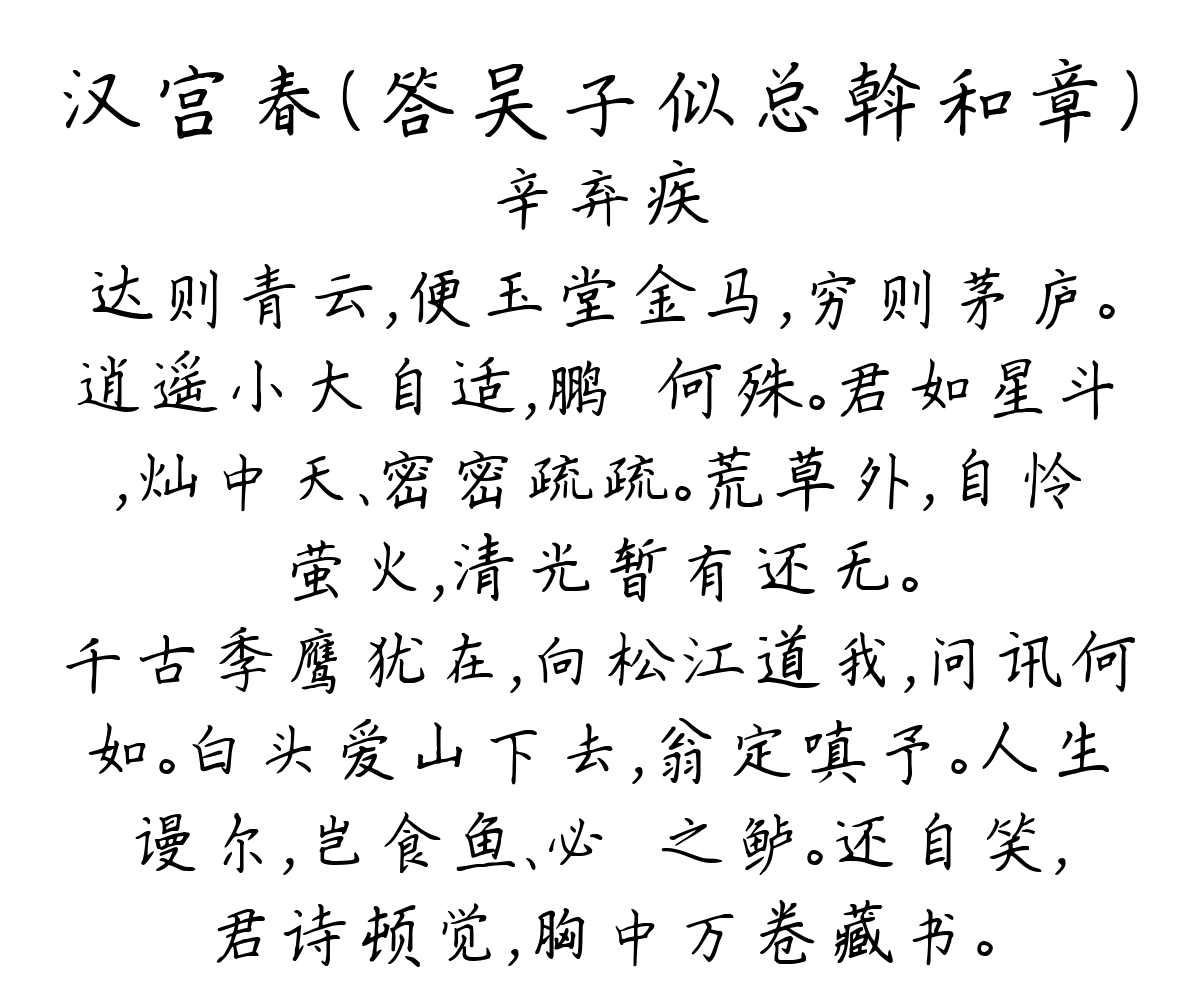 汉宫春(答吴子似总斡和章)
辛弃疾
达则青云,便玉堂金马,穷则茅庐。
逍遥小大自适,鹏 何殊。君如星斗
,灿中天、密密疏疏。荒草外,自怜
萤火,清光暂有还无。
千古季鹰犹在,向松江道我,问讯何
如。白头爱山下去,翁定嗔予。人生
谩尔,岂食鱼、必 之鲈。还自笑,
君诗顿觉,胸中万卷藏书。